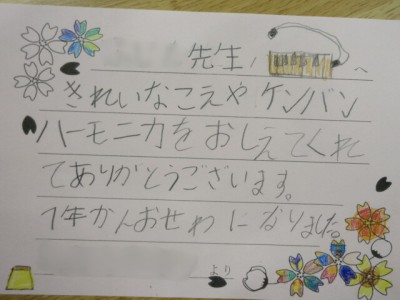 先生へ
きれいなこえやケンバン
ハーモニカをおしえてくれ
てありがとうございます。
1年かんおせわになりました。
より